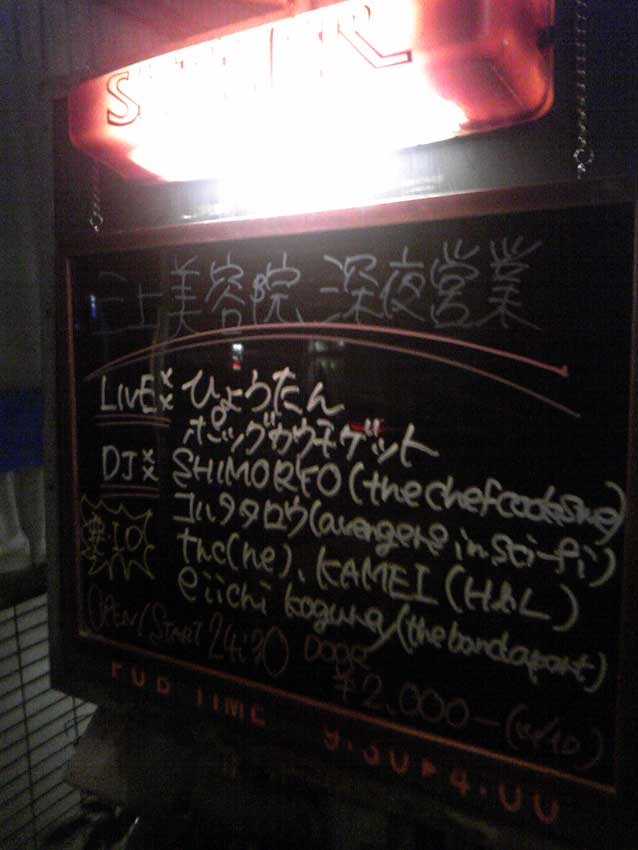 SHELTER
三上美容院、深夜営業
LIVE ひょうたん
DJ SHIMORYO (the chef cooks me)
コハタタロウ (avengers in sci-fi)
the(he)、KAMEI (H&L)
eiichi kogure (the band apart)
#10
OPEN/START 24:30 Door
¥2,000- (w/1D)
PUB TIME 9:30▶4:00